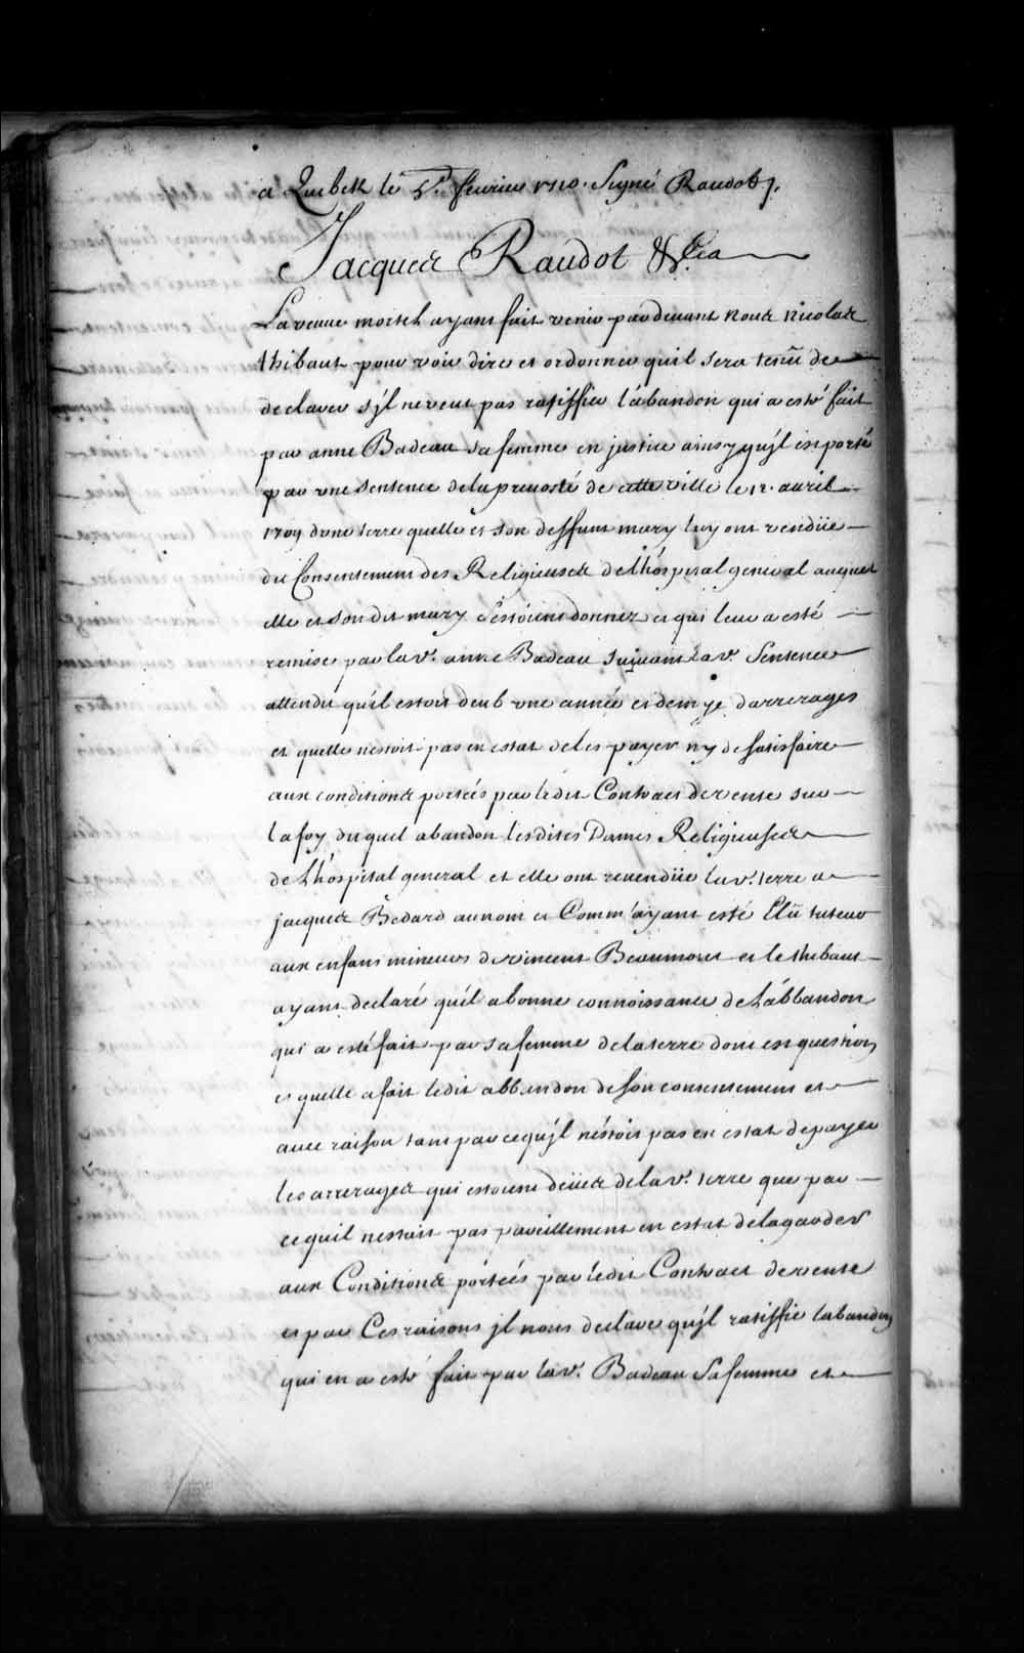 a Quebek le 5e. feurier 1710. Signé Raudot /.
Jacques Raudot &ca
La veuue morisk ayant fait venir pardeuant nous nicolas
thibaut pour voir dire et ordonner quil sera tenu de
declarer s'jl ne veut pas ratiffier l'abandon qui a esté fait
par anne Badeau sa femme en justice ainsy qu'jl est porté
par une sentence de la preuosté de cette ville le 12. auril
1709 dune terre quelle et son deffunt mary luy ont vendüe
du Consentement des Religieuses de l'hospital general auquel
elle et son dit mary s'estoient donnez et qui leur a esté
remise par la ve. anne Badeau suiuant la ve. Sentence
attendu qu'il estoit deub vne année et demye d'arrerages
et quelle nestoit pas en estat de les payer ny de satisfaire
aux conditions portées par ledit Contract de vente sur
la foy duquel abandon lesdites Dames Religieuses
de l'hospital general et elle ont reuendüe la ve. terre a
jacques Bedard au nom et Comm' ayant esté Elü tuteur
aux enfans mineurs de vincent Beaumont et le thibaut
ayant declaré qu'il a bonne connoissance de l'abbandon
qui a esté fait par sa femme de la terre dont est question
et quelle a fait ledit abbandon de son consentement et
auec raison tant parce qu'jl n'estoit pas en estat de payer
les arrerages qui estoient deües de la ve. terre que par
ce quil nestoit pas pareillement en estat de la garder
aux Conditions portées par ledit Contract de vente
et par Ces raisons jl nous declare qu'jl ratiffie labandon
qui en a esté fait par la ve. Badeau Sa femme et